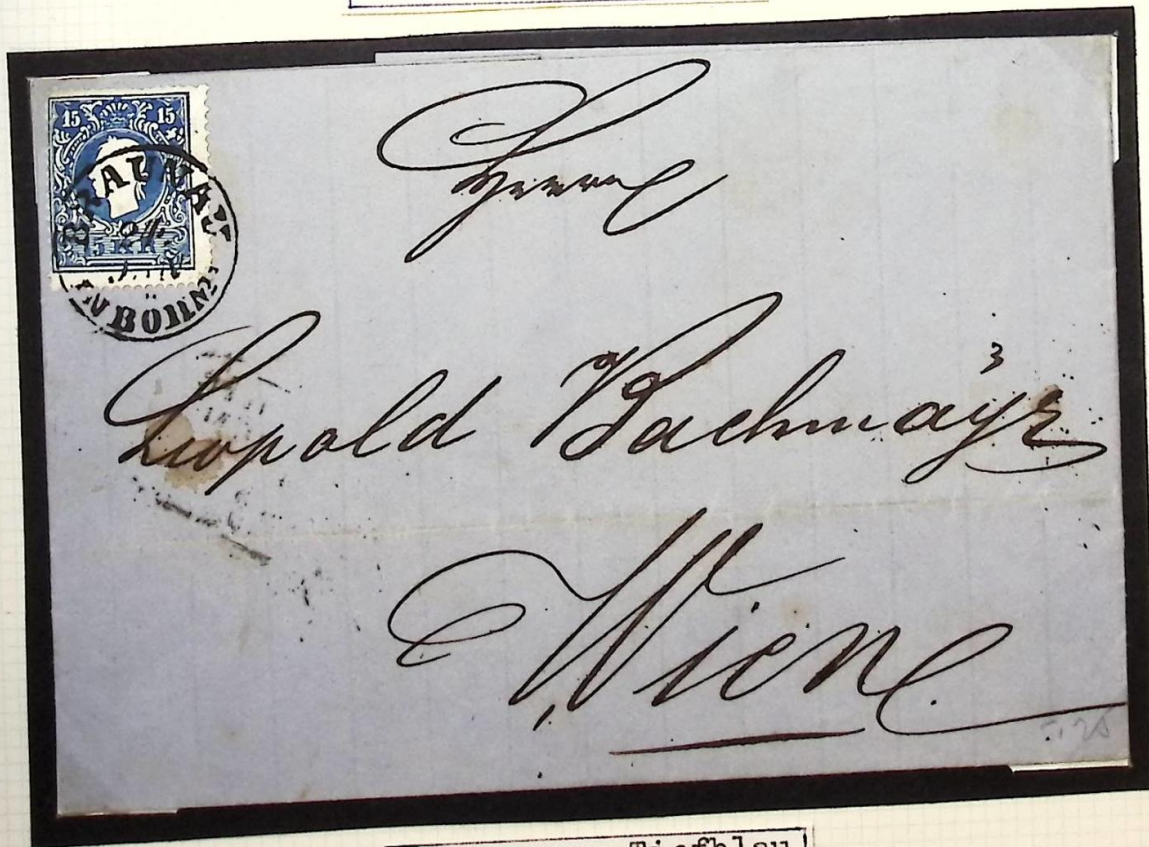 15 15
15 KR
BRAUNAU
IN BÖHM:
Herrn
Leopold Bachmäyr
Wien
Tiefblau!